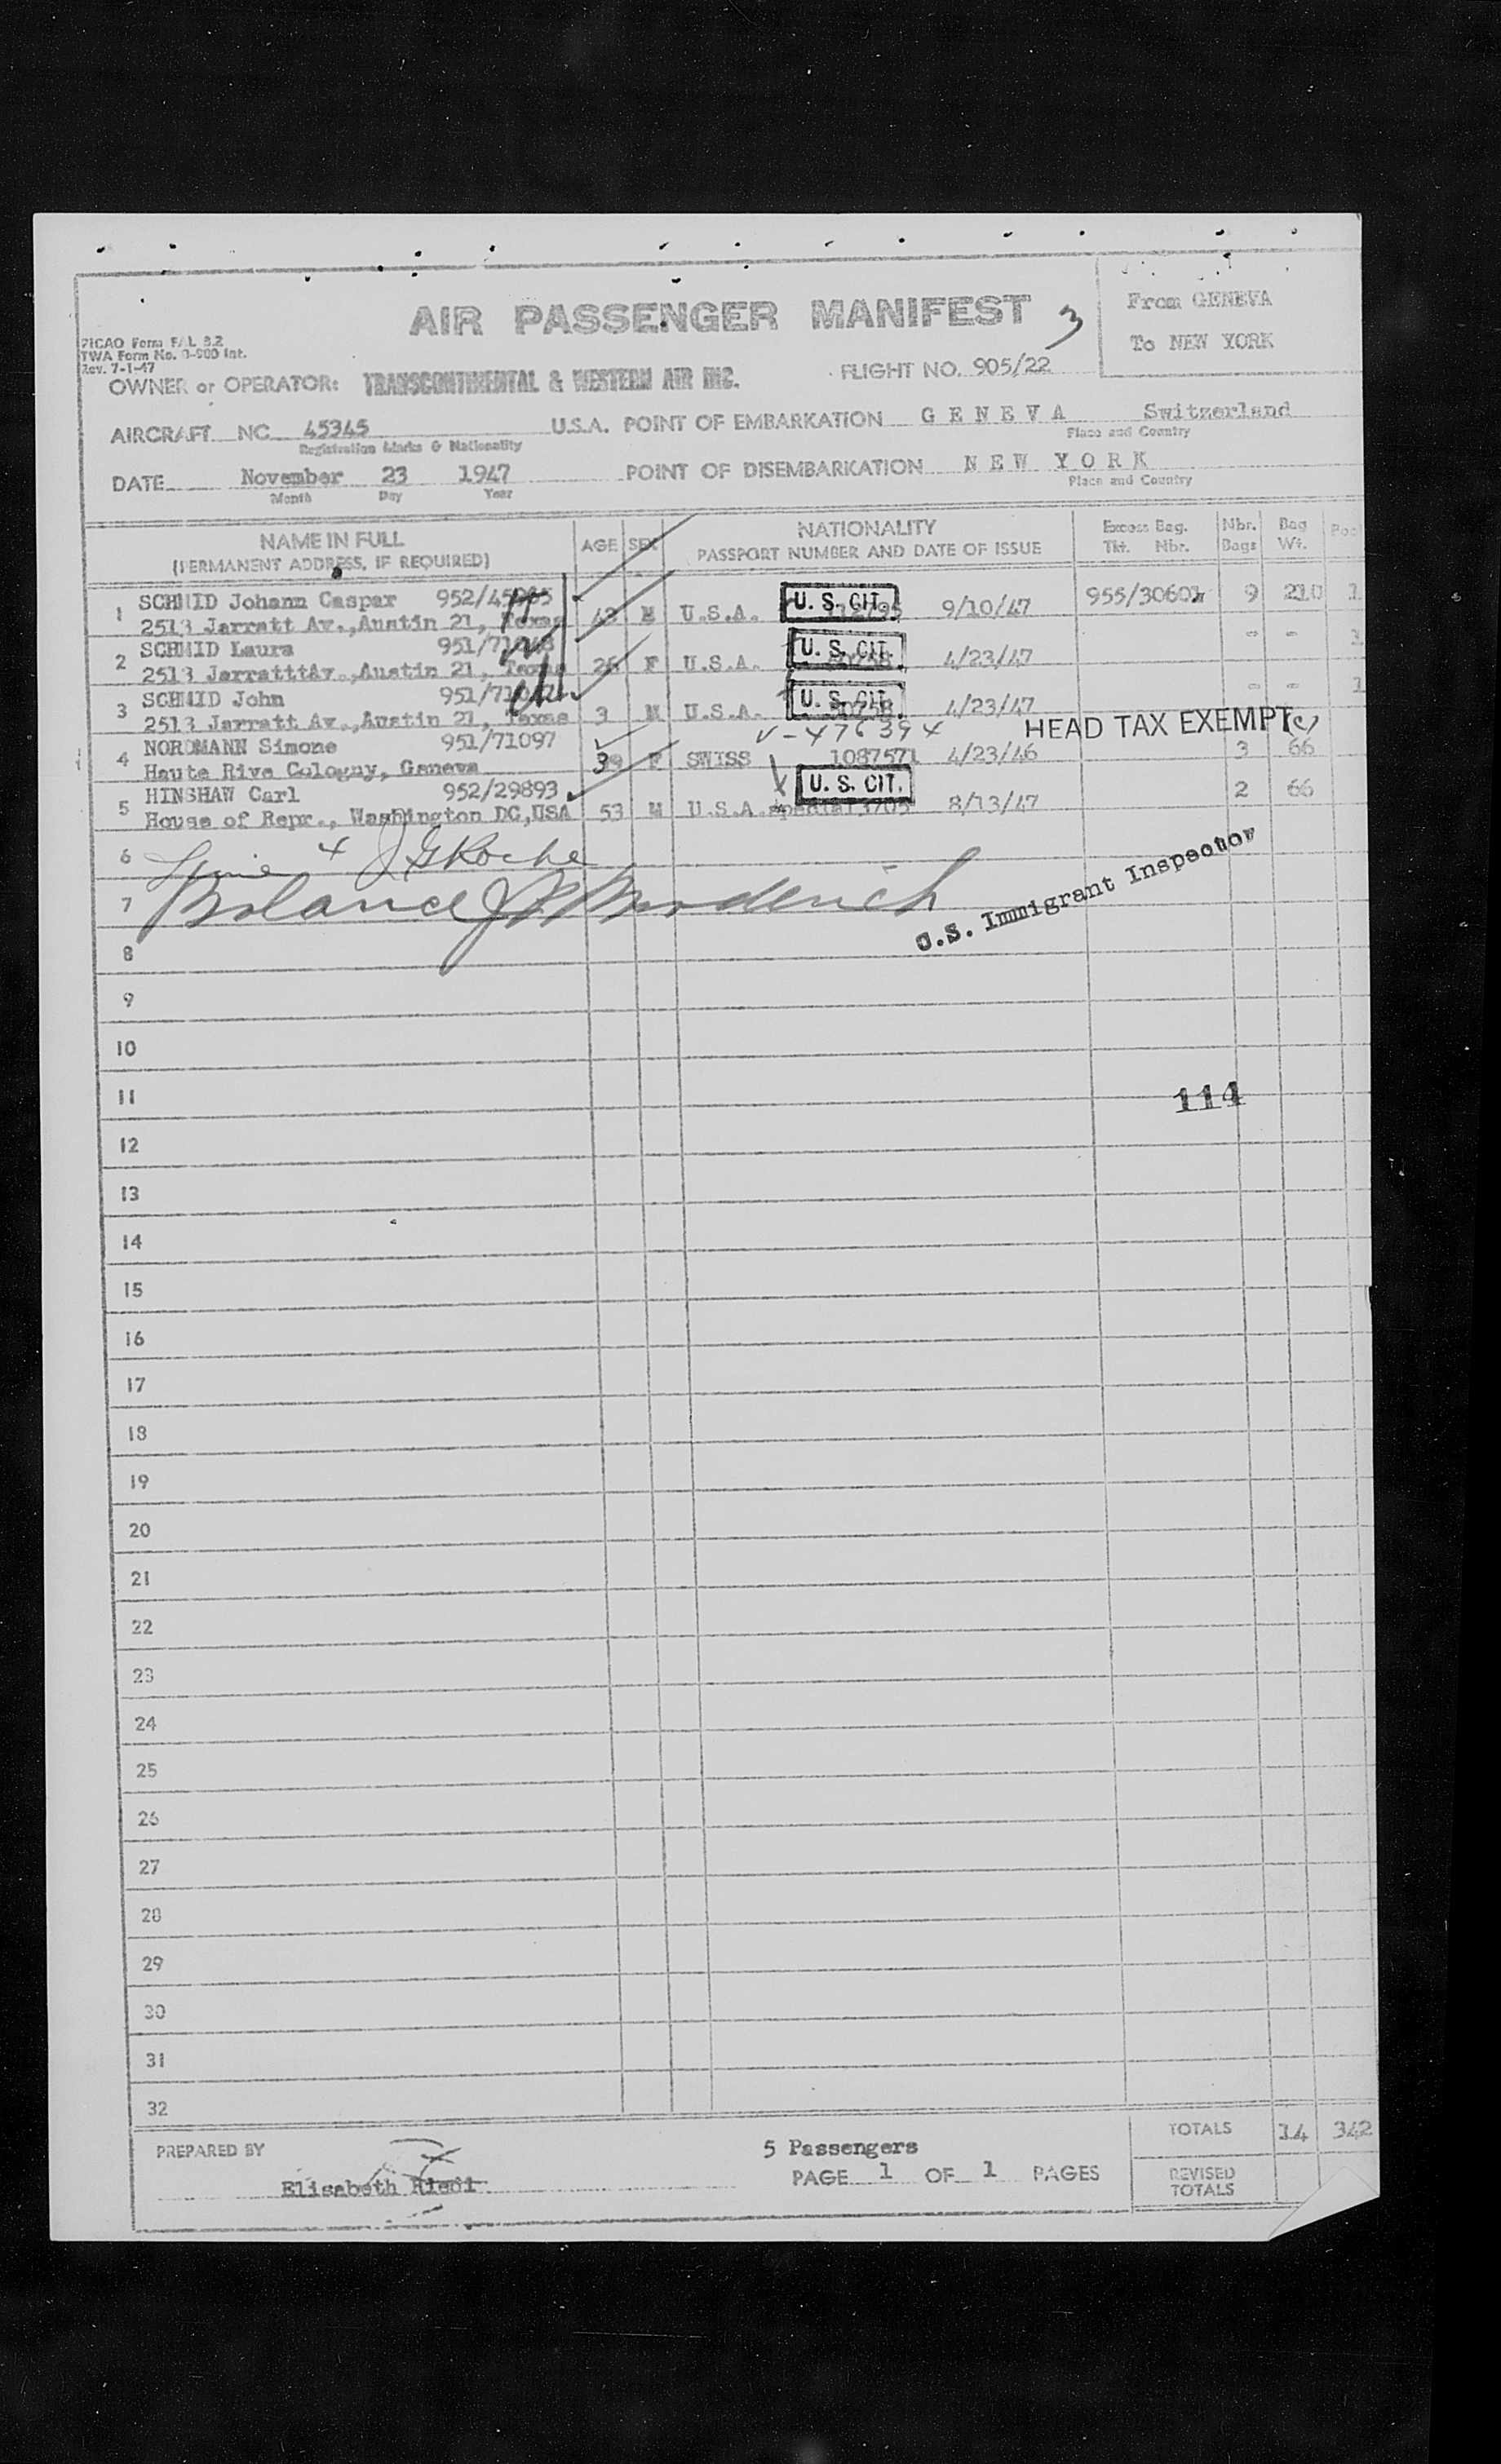 AIR PASSENGER MANIFEST 3
From GENEVA
To NEW YORK
PICAO Form FAL 8.2
TWA Form No. 0-900 Int.
Rev. 7-1-47
OWNER or OPERATOR: TRANSCONTINENTAL & WESTERN AIR INC. FLIGHT NO. 905/22
AIRCRAFT NC 45345 U.S.A. POINT OF EMBARKATION GENEVA Switzerland
Registration Marks & Nationality Place and Country
DATE November 23 1947 POINT OF DISEMBARKATION NEW YORK
Month Day Year Place and Country
NAME IN FULL AGE SEX NATIONALITY Excess Bag. Nbr. Bag
(PERMANENT ADDRESS, IF REQUIRED) PASSPORT NUMBER AND DATE OF ISSUE Tkt. Nbr. Bags Wt.
1 SCHMID Johann Caspar U. S. CIT. 955/30601 9 210 1
2513 Jarratt Av.,Austin 21, Texas 43 M U.S.A. 9/10/47
2 SCHMID Laura U. S. CIT. - -
2513 JarratttAv.,Austin 21, Texas 26 F U.S.A. 4/23/47
3 SCHMID John U. S. CIT. - - 1
2513 Jarratt Av.,Austin 21, Texas 3 M U.S.A. 4/23/47
V-476394 HEAD TAX EXEMPT
4 NORDMANN Simone 951/71097
Haute Rive Cologny, Geneva 39 F SWISS 1087571 4/23/46 3 66
5 HINSHAW Carl 952/29893 U. S. CIT. 2 66
House of Repr., Washington DC,USA 53 M U.S.A. special 8/13/47
6 Line 4 JGRoche
7 Balance
U.S. Immigrant Inspector
8
9
10
11
114
12
13
14
15
16
17
18
19
20
21
22
23
24
25
26
27
28
29
30
31
32
PREPARED BY 5 Passengers TOTALS 14 342
Elisabeth PAGE 1 OF 1 PAGES REVISED
TOTALS